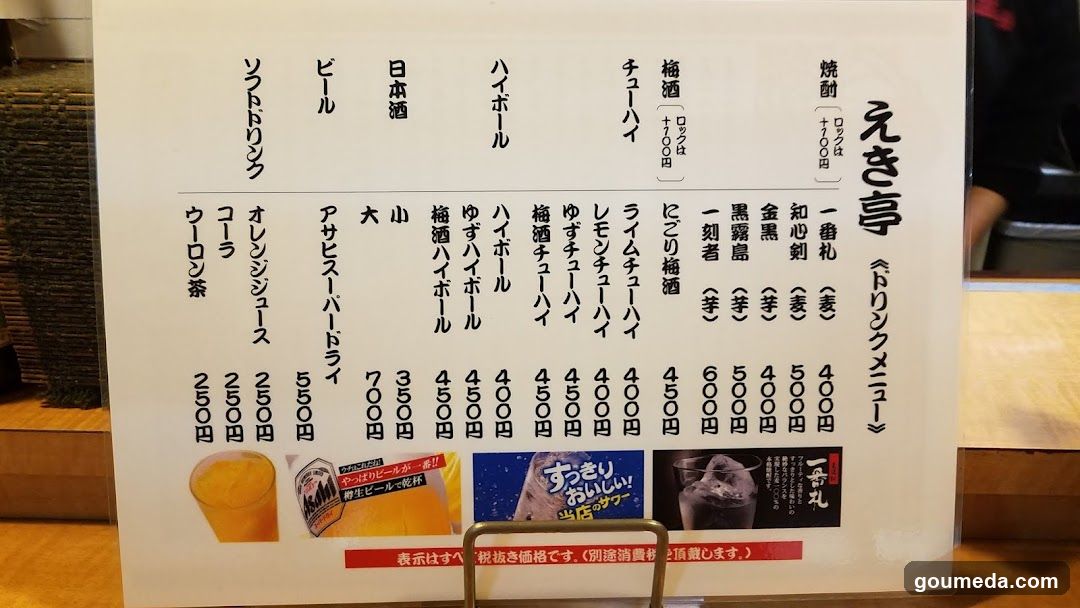 えき亭 《ドリンクメニュー》
焼酎 〔ロックは+100円〕
一番札 〈麦〉 400円
知心剣 〈麦〉 500円
金黒 〈芋〉 400円
黒霧島 〈芋〉 500円
一刻者 〈芋〉 600円
梅酒 〔ロックは+100円〕
にごり梅酒 450円
チューハイ
ライムチューハイ 400円
レモンチューハイ 400円
ゆずチューハイ 450円
梅酒チューハイ 450円
ハイボール
ハイボール 400円
ゆずハイボール 450円
梅酒ハイボール 450円
日本酒
小 350円
大 700円
ビール
アサヒスーパードライ 550円
ソフトドリンク
オレンジジュース 250円
コーラ 250円
ウーロン茶 250円
一番札
フルーティな香りと
すっきりとした味わいの
絶妙なバランスを
実現した麦一〇〇%の
本格焼酎です。
すっきり
おいしい!
当店のサワー
ウチはこれだね!
やっぱりビールが一番!!
樽生ビールで乾杯
Asahi
表示はすべて税抜き価格です。(別途消費税を頂戴します。)
goumeda.com